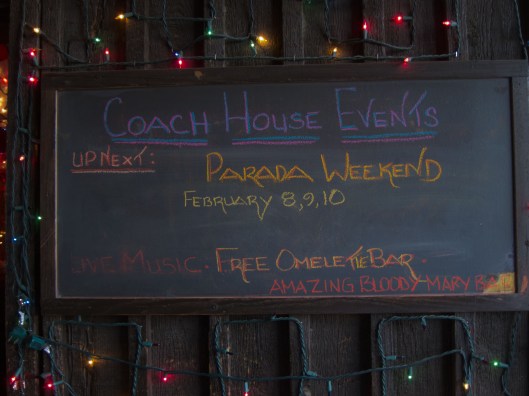 COACH HOUSE EVENTS
UP NEXT:
PARADA WEEKEND
FEBRUARY 8,9,10
LIVE MUSIC. FREE OMELETTE BAR.
AMAZING BLOODY MARY BAR